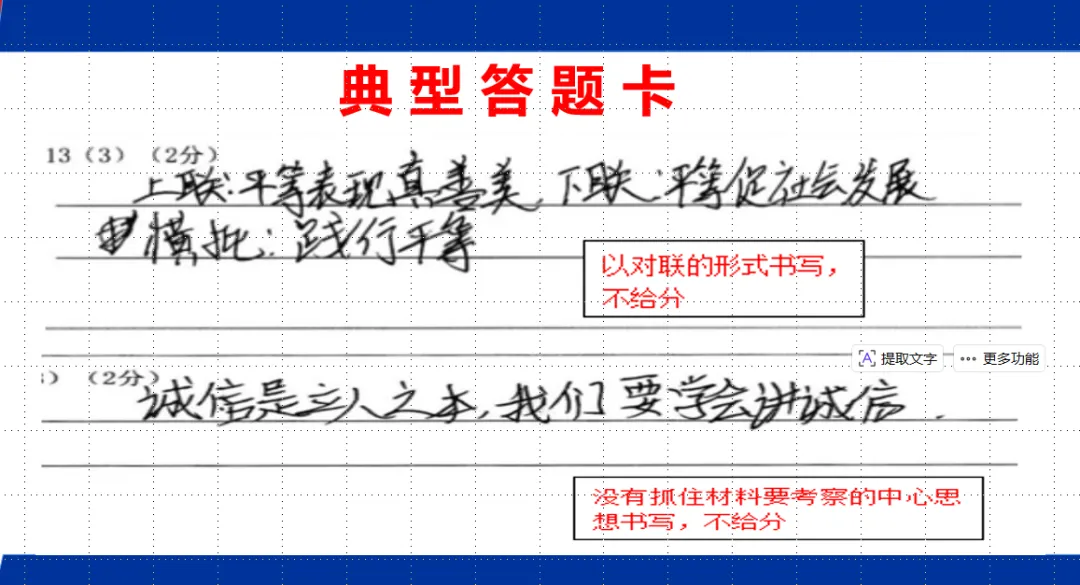 典型答题卡
13（3）（2分）
上联：平等表现真善美，下联：平等促社会发展
横批：践行平等
以对联的形式书写，
不给分
提取文字 ··· 更多功能
）（2分）
诚信是立人之本，我们要学会讲诚信．
没有抓住材料要考察的中心思
想书写，不给分